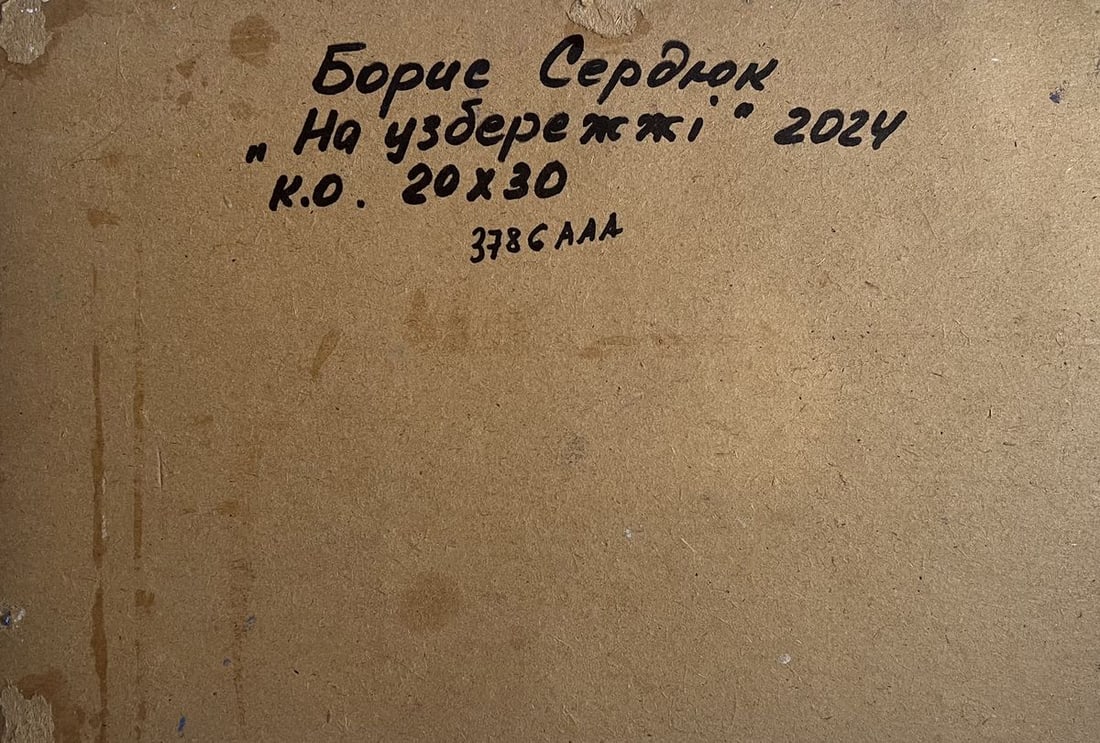 Борис Сердюк
„На узбережжі" 2024
к.о. 20х30
3786ААА